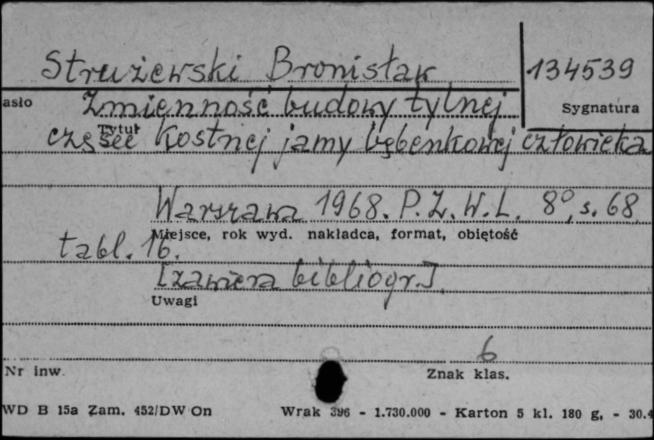 Strużewski Bronisław 134539
asło Zmienność budowy tylnej Sygnatura
Tytuł
części kostnej jamy bębenkowej człowieka
Warszawa 1968. P.Z.W.L. 8°, s. 68
Miejsce, rok wyd. nakładca, format, objętość
tabl. 16.
[zawiera bibliogr.]
Uwagi
6
Nr inw. Znak klas.
WD B 15a Zam. 452/DW On Wrak 396 - 1.730.000 - Karton 5 kl. 180 g, - 30.4